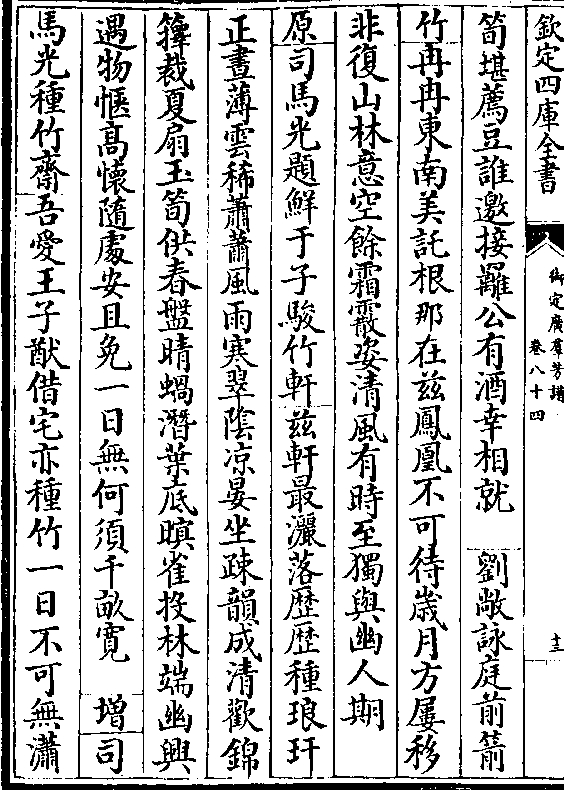 欽定四庫全書
御定廣羣芳譜
卷八十四
十三
筍堪薦豆誰邀接䍦公有酒幸相就　劉敞詠庭前箭
竹冉冉東南美託根那在兹鳳凰不可待歲月方屢移
非復山林意空餘霜霰姿清風有時至獨與幽人期
原司馬光題鮮于子駿竹軒兹軒最灑落歴歴種琅玕
正晝薄雲稀蕭蕭風雨寒翠陰凉晏坐疎韻成清歡錦
籜裁夏扇玉筍供春盤晴蝸潛葉底暝雀投林端幽興
遇物愜高懷随處安且免一日無何須千畝寛　增司
馬光種竹齋吾愛王子猷借宅亦種竹一日不可無瀟